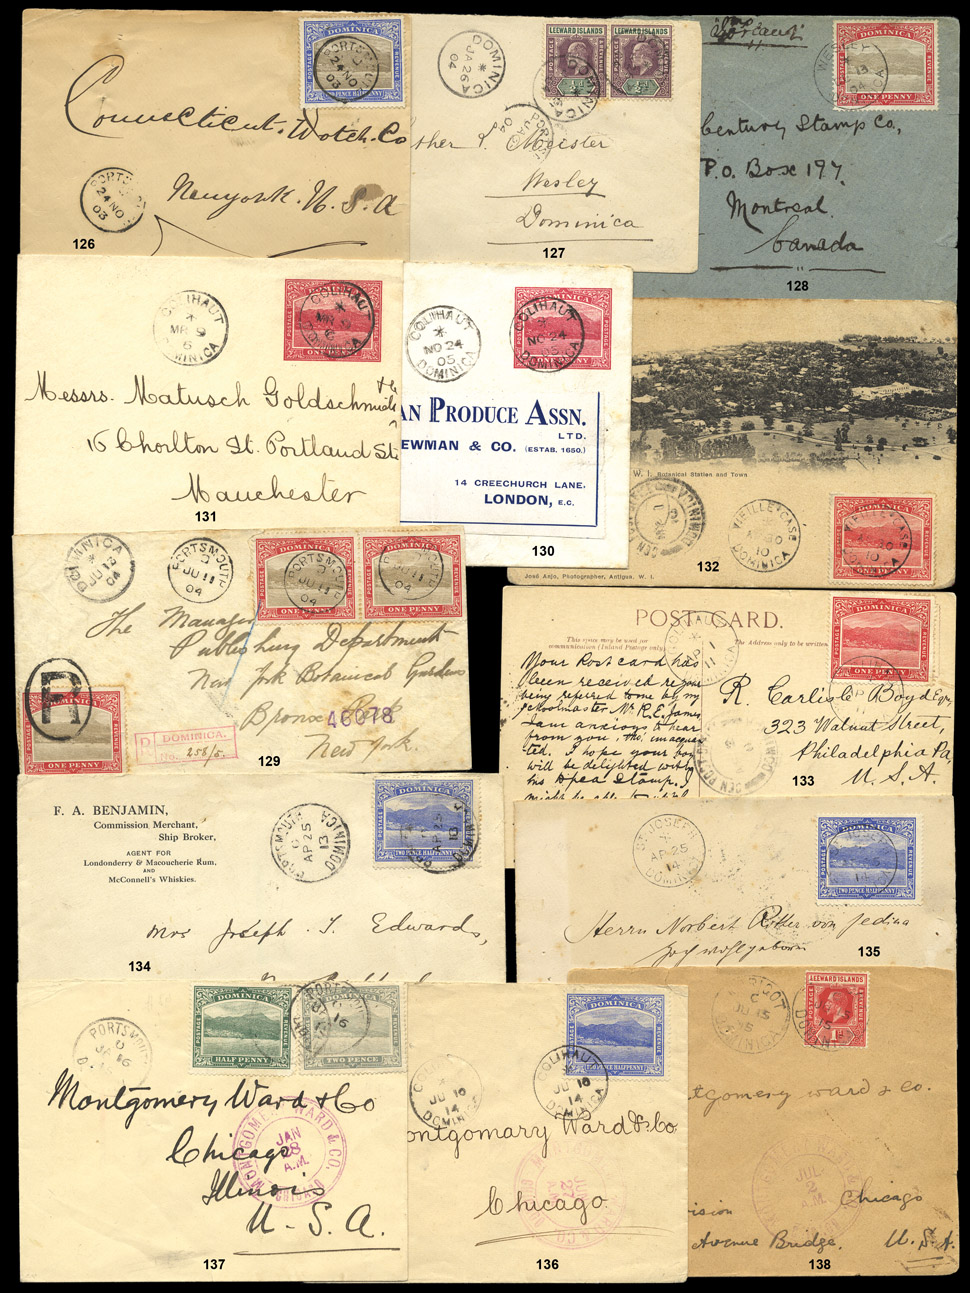 DOMINICA
POSTAGE
REVENUE
PENCE HALFPENNY
PORTSMOUTH
24 NO
03
Connecticut. Watch. Co
Newyork. U. S. A
PORTSM
24 NO
03
126
DOMINICA
JA 26
04
LEEWARD ISLANDS
LEEWARD ISLANDS
ther I. Meister
Wesley
Dominica
127
DOMINICA
POSTAGE
REVENUE
ONE PENNY
WESLEY
13
04
Century Stamp Co,
P.O. Box 197,
Montreal
Canada
128
COLIHAUT
MR 9
6
DOMINICA
DOMINICA
POSTAGE
REVENUE
ONE PENNY
Messrs. Matusch Goldschmidt & Co
16 Chorlton St. Portland St
Manchester
131
COLIHAUT
NO 24
05
DOMINICA
COLIHAUT
NO 24
05
DOMINICA
ONE PENNY
AN PRODUCE ASSN.
LTD.
EWMAN & CO. (ESTAB. 1650.)
14 CREECHURCH LANE,
LONDON, E.C.
130
W. I. Botanical Station and Town
VIEILLE CASE
10
DOMINICA
DOMINICA
ONE PENNY
José Anjo, Photographer, Antigua, W. I.
132
DOMINICA
JU 13
04
PORTSMOUTH
JU 11
04
DOMINICA
ONE PENNY
DOMINICA
ONE PENNY
The Manager
Publishing Department
New York Botanical Gardens
Bronx Park
46078
New York.
R
ONE PENNY
DOMINICA.
No. 258/5.
129
POST CARD.
This space may be used for
communication (Inland Postage only)
The Address only to be written
DOMINICA
POSTAGE
REVENUE
ONE PENNY
Your Post card has
been received re your
being referred to me by my
schoolmaster Mr R. E. James
I am anxious to hear
from you the
ted. I hope your boy
will be delighted with
his Stamp. I
might be able to
R. Carlisle Boyd Esqr,
323 Walnut Street,
Philadelphia Pa,
U. S. A.
133
F. A. BENJAMIN,
Commission Merchant,
Ship Broker,
AGENT FOR
Londonderry & Macoucherie Rum,
AND
McConnell's Whiskies.
PORTSMOUTH
AP 25
13
DOMINICA
DOMINICA
TWO PENCE HALFPENNY
Mrs Joseph T. Edwards,
134
ST JOSEPH
AP 25
14
DOMINICA
DOMINICA
TWO PENCE HALFPENNY
Herrn Norbert Ritter von Jedina
135
PORTSMOUTH
JA
16
DOMINICA
HALF PENNY
TWO PENCE
16
Montgomery Ward & Co
Chicago
Illinois
U. S. A.
MONTGOMERY WARD & CO.
JAN
28
A.M.
CHICAGO
137
COLIHAUT
JU 16
14
DOMINICA
DOMINICA
TWO PENCE HALFPENNY
COLIHAUT
JU 16
14
DOMINICA
ontgomary Ward & Co
Chicago.
136
LEEWARD ISLANDS
POSTAGE
REVENUE
JU 15
DOMINICA
tgomery Ward & Co.
JUL
A.M.
Chicago
ision
Avenue Bridge. U. S. A.
138